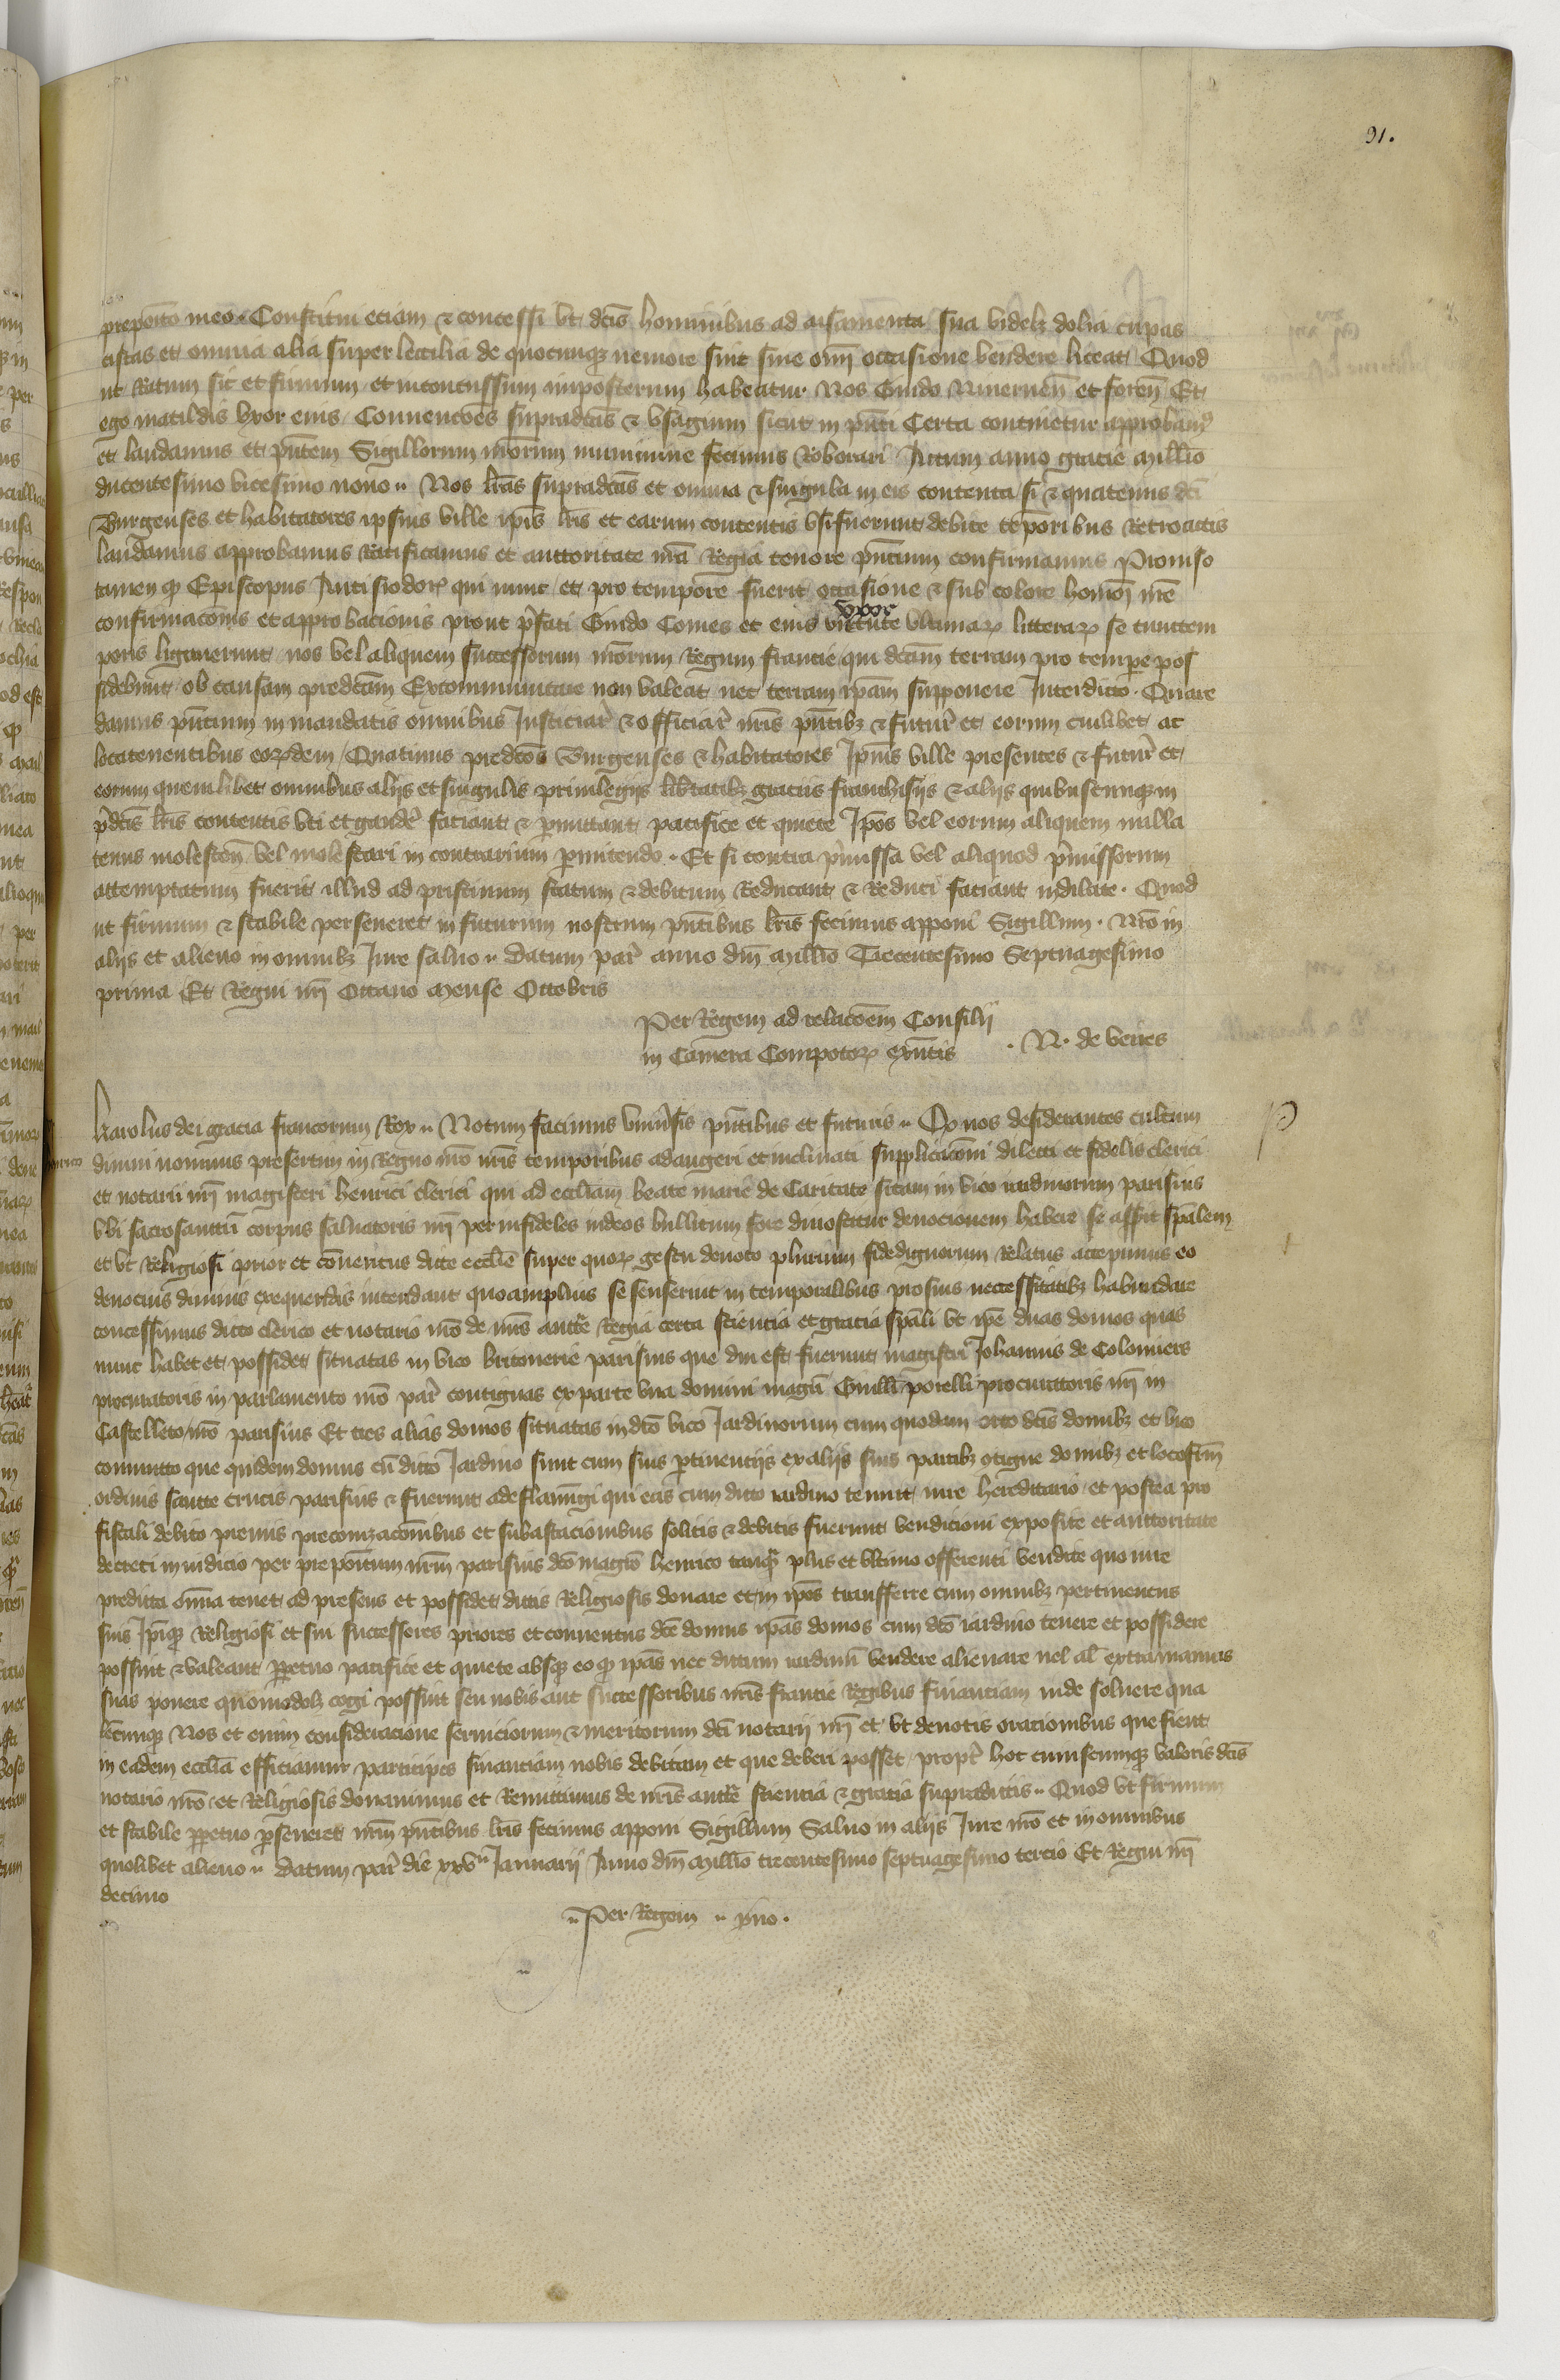 91.
preposito meo. Constitui eciam & concessi vt dcīs hominibus ad aisamenta sua videlz dolia cupas
cistas et omnia alia super lectilia de quocunqz nemore sint sine omī occasione vendere liceat Quod
ut Ratum sit et firmum et inconcussum imposterum habeatur Nos Guido Niuernēn et foreñ Et
ego matildis vxor eius Conuencōes supradctās & vsagium sicut in pn̄ti Carta continetur approbam9
et laudamus et pn̄tem Sigillorum nrōrum munimine fecimus Roborari Actum anno gracie Millīo
ducentesimo vicesimo nono .. Nos lrās supradctās et omnia & singula in eis contenta si & quatenus dcī
Burgenses et habitatores ipsius ville ipīs lrīs et earum contentis vsi fuerunt debite tēporibus Retroactis
laudamus approbamus Ratificamus et auctoritate nrā Regia tenore pn̄cium confirmamus Prouiso
tamen qz Episcopus Autisiodorꝫ qui nunc et pro tempore fuerit occasione & sub colore homōī nrē
confirmacōnis et approbacionis prout p̄fati Guido Comes et eius vxor virtute vltimarꝫ litterarꝫ se tunctem
poris ligauerunt nos vel aliquem successorum nrōrum Regum francie qui dcām terram pro tempe pos
sidebunt ob causam predctām Excommunicare non valeat nec terram ipām supponere Interdicto. Quare
damus pn̄cium in mandatis omnibus Justiciar̄ & officiar̄ nrīs pn̄tibz & futur̄ et eorum cuilibet ac
locatenentibus eorꝫdem Quatinus predctōs Burgenses & habitatores Ipīus ville presentes & futur̄ et
eorum quemlibet omnibus alijs et singulis priuilegijs libtatibz graciis franchisijs & alijs quibuscunqz in
p̄dcīs lrīs contentis vti et gauder̄ faciant & pmittant pacifice et quiete Ipōs vel eorum aliquem nulla
tenus molestan̄ vel molestari in contrarium pmittendo . Et si contra p̄missa vel aliquod p̄missorum
attemptatum fuerit illud ad pristinum statum & debitum Reducant & Reduci faciant indilate . Quod
ut firmum & stabile perseueret in futurum nostrum pn̄tibus lrīs fecimus apponi Sigillum . Nrō in
alijs et alieno in omnibz Jure saluo .. Datum par̄ anno dnī Millīo Trecentesimo Septuagesimo
primo Et Regni nrī Octauo Mense Octobris
Per Regem ad relacōem Consilij
in Camera Compotorꝫ exn̄tis . N. de veires
Karolus dei gracia francorum Rex .. Notum facimus vniu̓sis pn̄tibus et futuris .. Qz nos desiderantes cultum
diuini nominis presertim in Regno nrō nrīs temporibus adaugeri et inclinati supplicacōni dilecti et fidelis clerici
et notarii nrī magistri henrici clerici qui ad eccliam beate marie de Caritate sitam in vico iardinorum parisius
vbi sacrosanctū corpus saluatoris nrī per infideles iudeos bullitum fore dinoscitur deuocionem habere se asserit spālem
et vt Religiosi prior et cōuentus dicte ecclīe super quorꝫ gestu deuoto plurium fidedignorum Relatus accepimus eo
deuocius diuinis exequendis intendant quo amplius se senserint in temporalibus prosuis necessitatibz habundare
concessimus dicto clerico et notario nrō de nrīs auctte Regia certa sciencia et gracia spāli vt ipē duas domos quas
nunc habet et possidet situatas in vico britonerie parisius que diu est fuerunt magistri Johannis de Colomiers
procuratoris in parlamento nrō par̄ contiguas ex parte vna domini magrī Guillī porelli procuratoris nrī in
Castelleto nrō parisius Et tres alias domos situatas in dcō vico Jardinorum cum quodam orto dcīs domibz et vico
coniuncto que quidem domus cū dicto Jardino sunt cum suis ptinentijs ex alijs suis partibz 9tigue domibz et loco frm̄
ordinis sancte crucis parisius & fuerunt ade flamingi qui eas cum dicto iardino tenuit iure hereditario et postea pro
fiscali debito preuiis preconizacōnibus et subastacionibus solitis & debitis fuerunt vendicioni exposite et auctoritate
decreti in iudicio per prepoītum nrm̄ parisius dcō magrō henrico tanqz plus et vltimo offerenti vendite quo iure
predicta omīa tenet ad presens et possidet dictis Religiosis donare et in ipōs transferre cum omnibz pertinenciis
suis Ipīqz Religiosi et sui successores priores et conuentus dcē domus ipās domos cum dcō iardino tenere et possidere
possint & valeant ppetuo pacifice et quiete absqz eo qz ipās nec dictum iardinū vendere alienare uel al̄ extra manus
suas ponere quomodolz cogi possint seu nobis aut successoribus nrīs francie Regibus financiam inde soluere qua
lēcunqz Nos et enim consideracione seruiciorum & meritorum dcī notarij nrī et vt deuotis oracionibus que fient
in eadem ecclīa efficiamur participes financiam nobis debitam et que deberi posset propt̄ hoc cuiuscunqz valoris dcīs
notario nrō et Religiosis donauimus et Remittimus de nrīs auctte sciencia & gracia supradictis .. Quod vt firmum
et stabile ppetuo pseueret nrm̄ pn̄tibus lrīs fecimus apponi Sigillum Saluo in alijs Jure nrō et in omnibus
quolibet alieno .. Datum par̄ die xxvta Januarij Anno dnī Millīo trecentesimo septuagesimo tercio Et Regni nrī
decimo
.. Per Regem .. yuo .